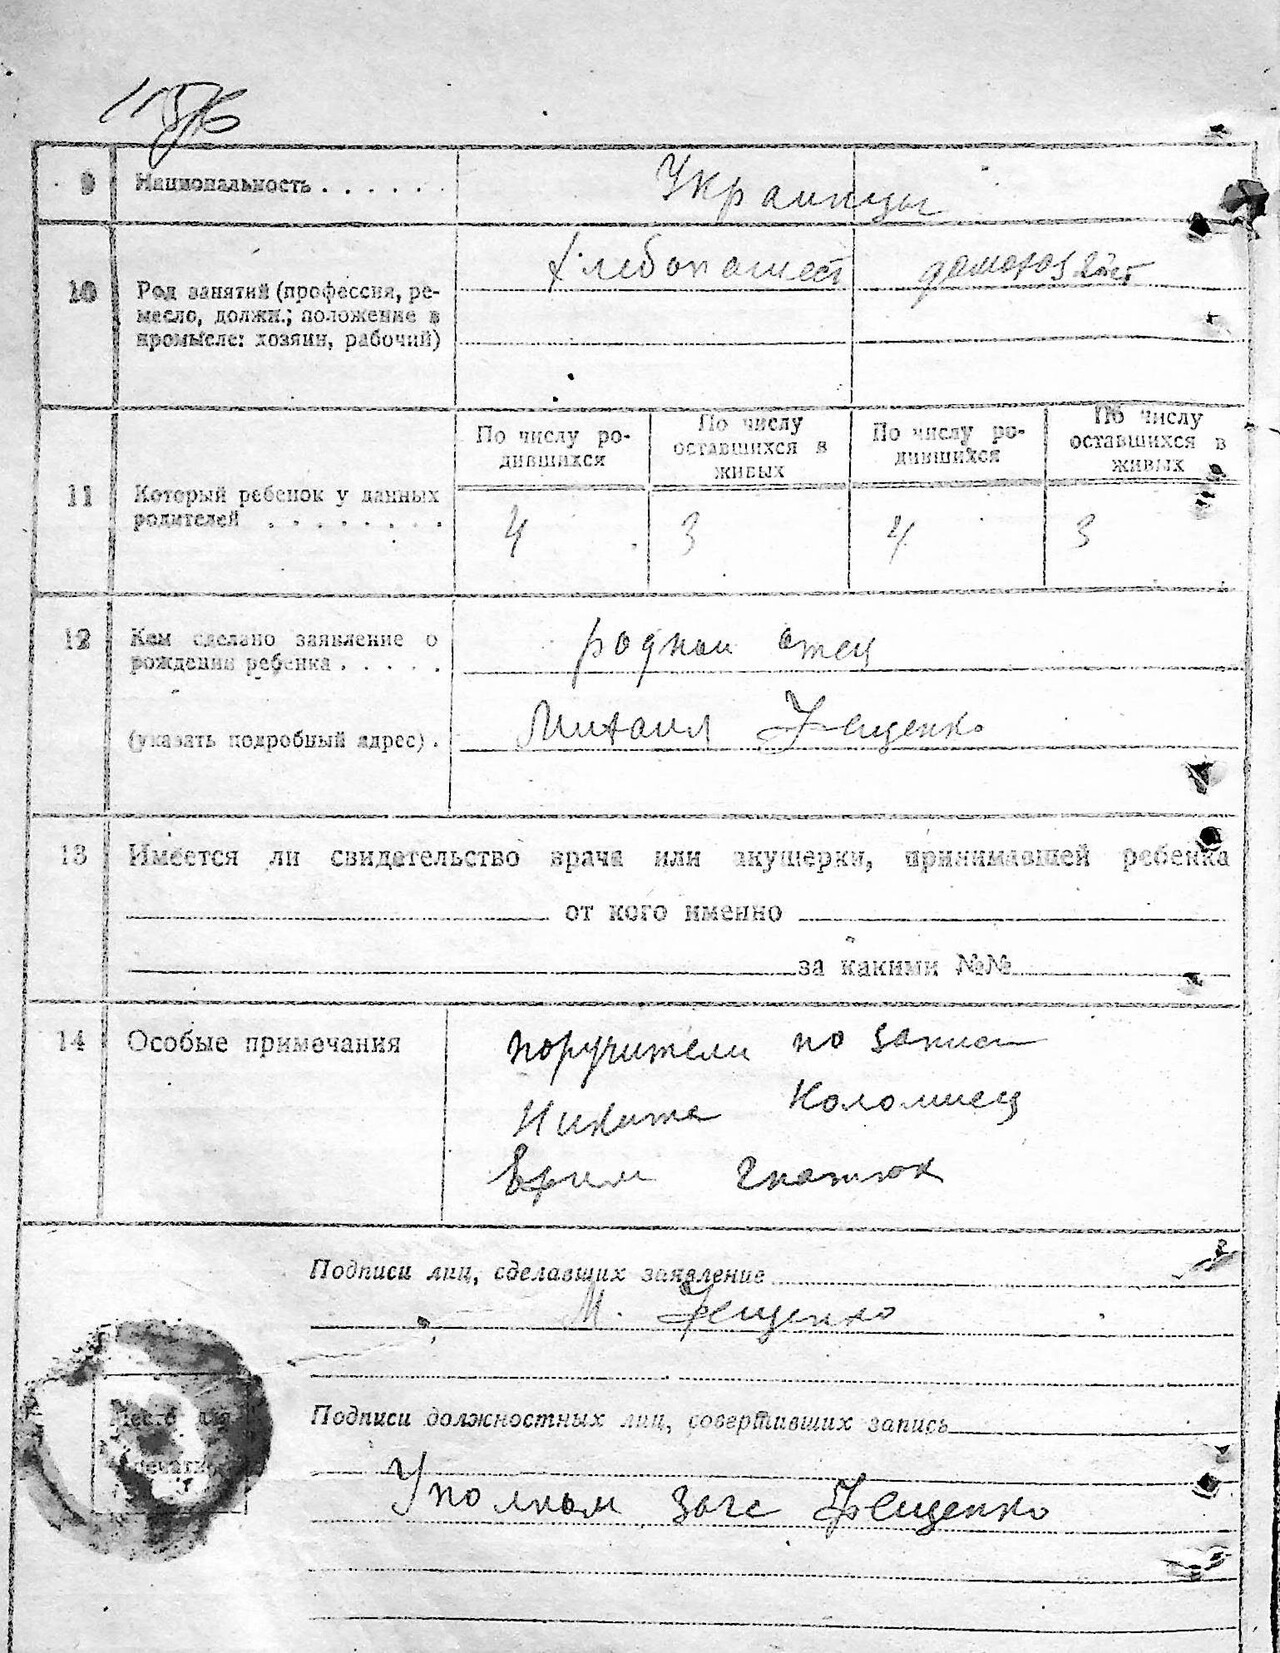 9 Национальность . . . . . . Украинцы
10 Род занятий (профессия, ре-
месло, должн.; положение в
промысле: хозяин, рабочий)
хлебопашест домохоз
11 Который ребенок у данных
родителей . . . . . . . .
По числу ро-
дившихся
По числу
оставшихся в
живых
По числу ро-
дившихся
По числу
оставшихся в
живых
4 3 4 3
12 Кем сделано заявление о
рождении ребенка . . . . .
(указать подробный адрес) .
родной отец
Михаил Фещенко
13 Имеется ли свидетельство врача или акушерки, принимавшей ребенка
от кого именно
за какими №№
14 Особые примечания
поручители по записи
Никита Коломиец
Гнатюк
Подписи лиц, сделавших заявление
М. Фещенко
Подписи должностных лиц, совертивших запись
Место для
печати
Уполном загс Фещенко